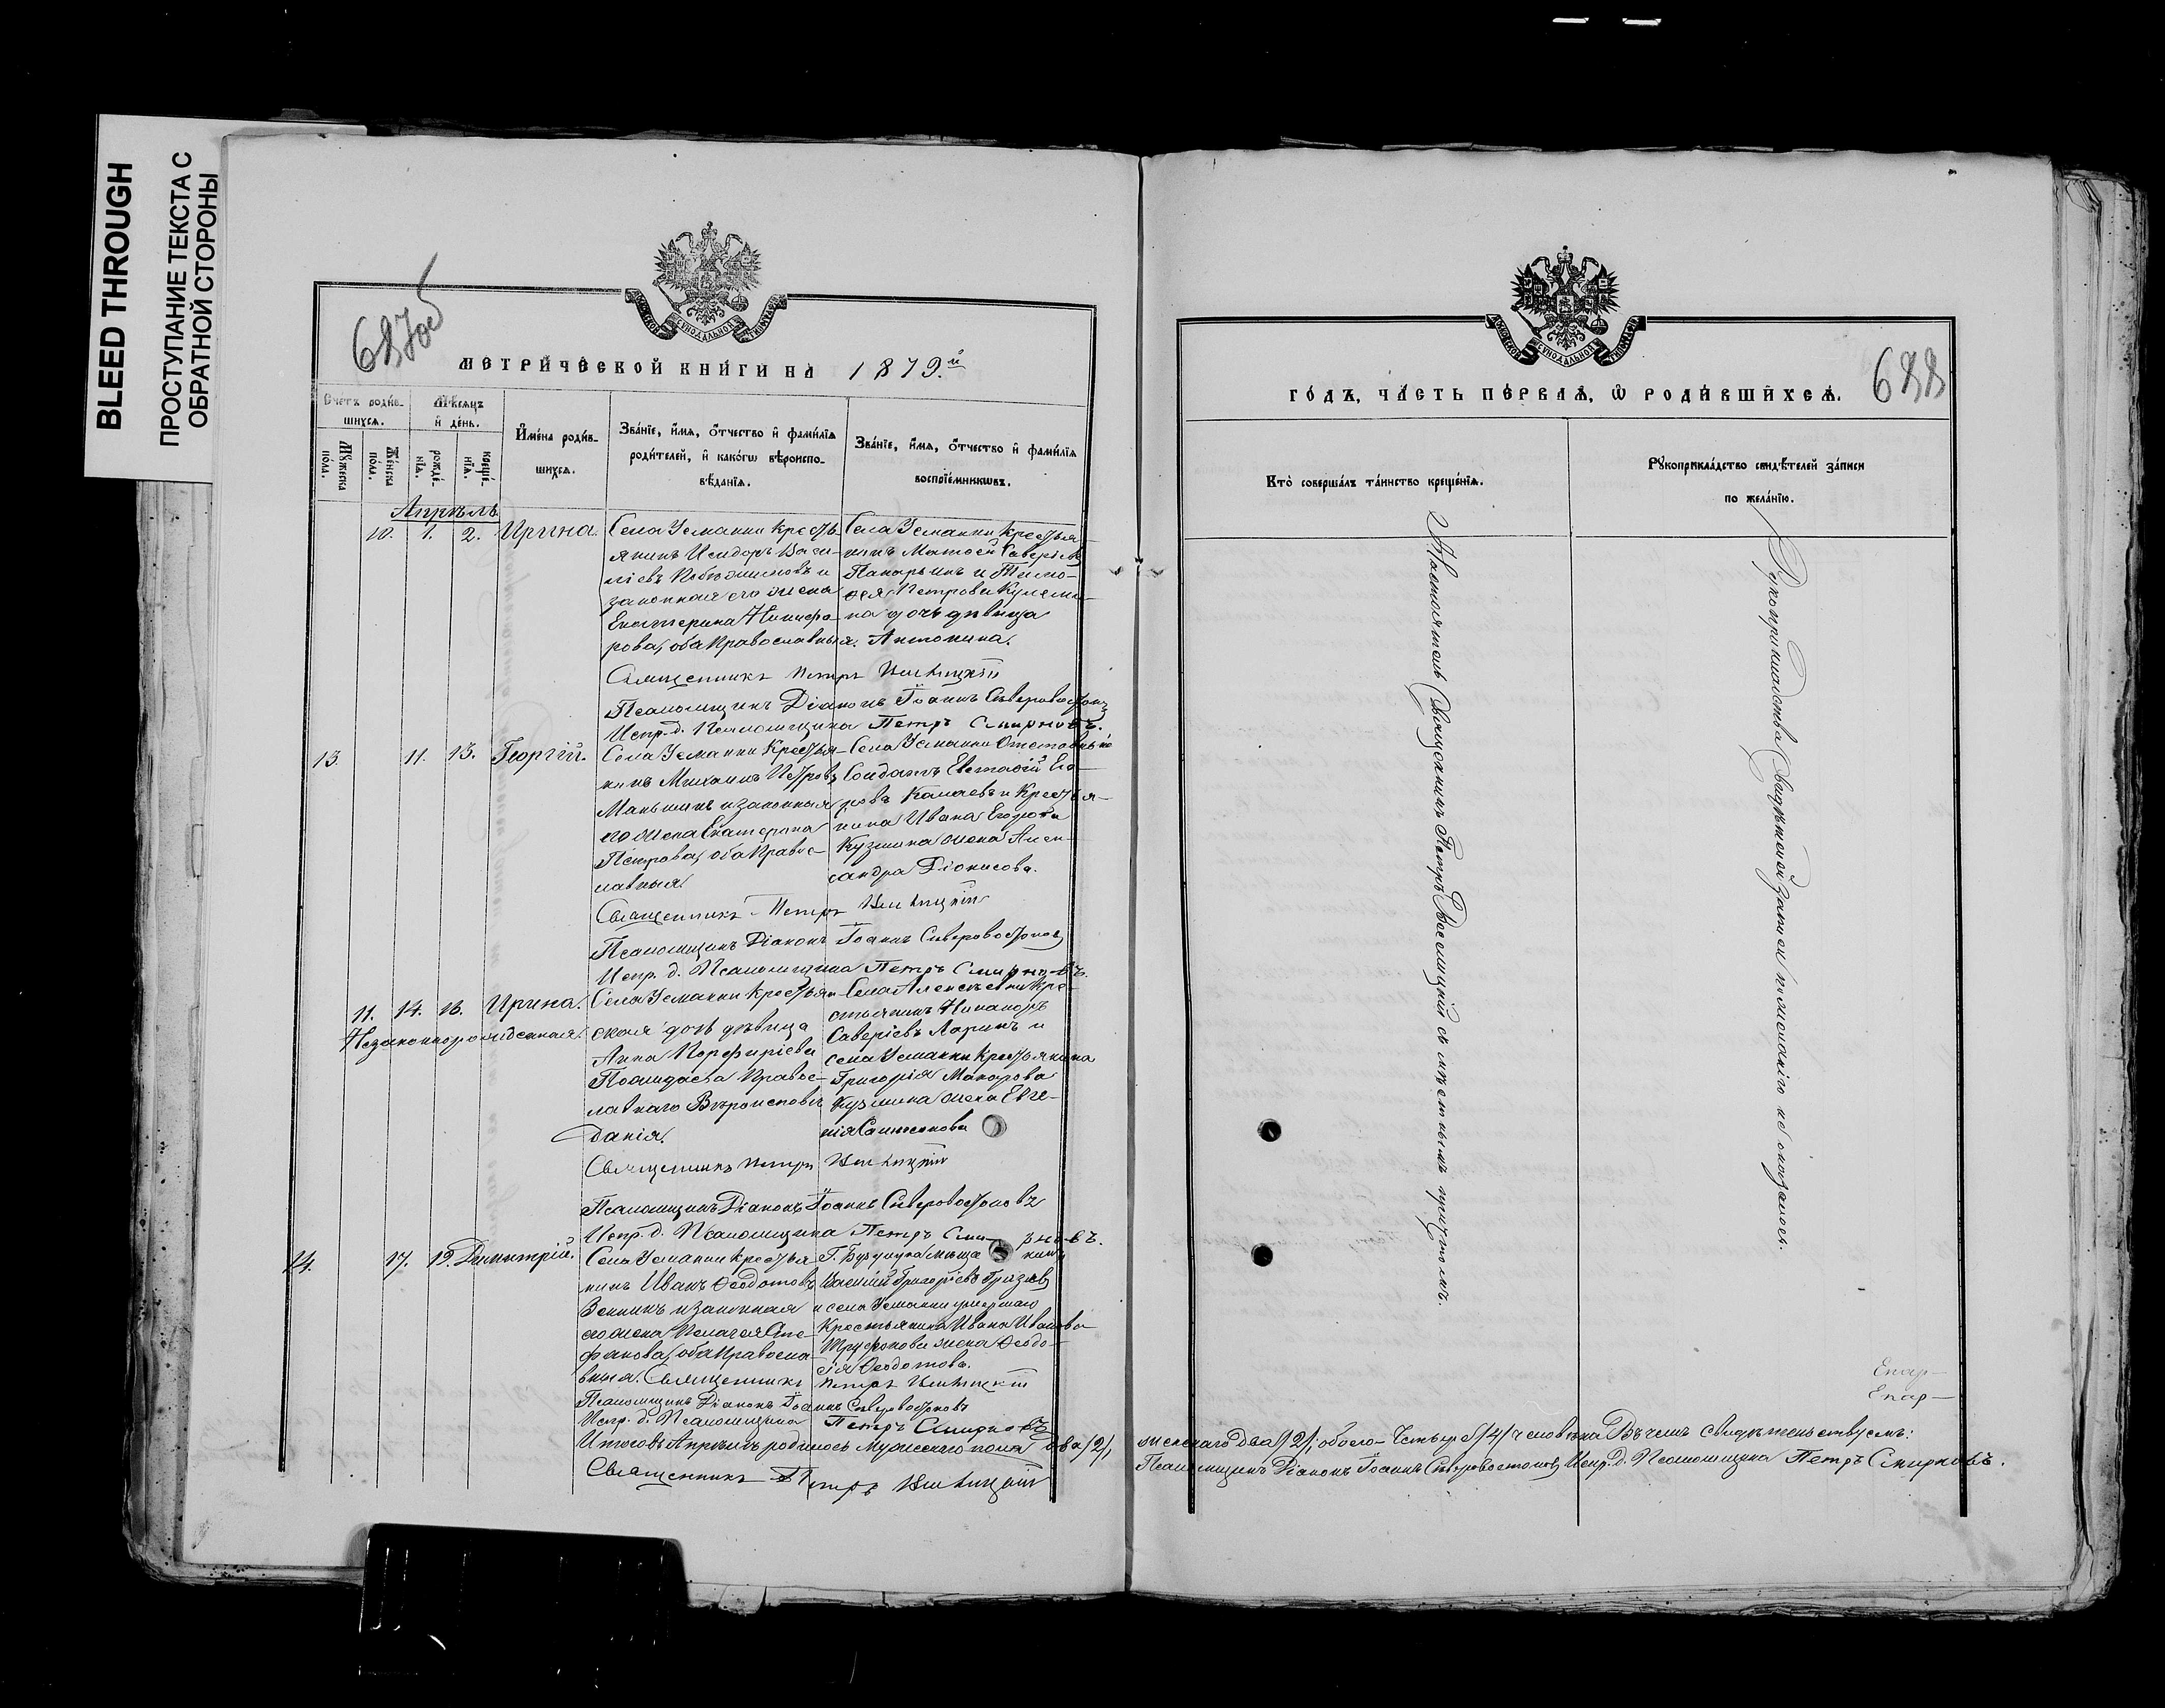 BLEED THROUGH
ПРОСТУПАНИЕ ТЕКСТА С
ОБРАТНОЙ СТОРОНЫ
687об
МЕТРИЧЕСКОЙ КНИГИ НА 1879.й
Счетъ родив-
шихся.
Мѣсяцъ
и день.
Мужеска
пола.
Женска
пола.
рожде-
нія.
креще-
нія.
Имена родив-
шихся.
Званіе, имя, отчество и фамилія
родителей, и какого вѣроиспо-
вѣданія.
Званіе, имя, отчество и фамилія
воспріемниковъ.
Апрѣль
10. 1. 2. Ирина.
Села Усманки Кресть-
янинъ Исидоръ Васи-
ліевъ и
законная его жена
Екатерина Никифо-
рова, оба Православныя.
Села Усманки Крестья-
нинъ Матѳей Саверіевъ
и
Петрова
на дочь дѣвица
Антонина.
Священникъ Петръ
Псаломщикъ Діаконъ Іоаннъ Сѣверовостоковъ
Испр. д. Псаломщика Петръ Смирновъ.
13. 11. 13. Георгій.
Села Усманки Крестья-
нинъ Михаилъ Петровъ
Маньшинъ и законная
его жена Екатерина
Петрова, оба Правос-
лавныя.
Села Усманки Отставный
Солдатъ Евстафій Его-
ровъ и Крестья-
нина Ивана Егорова
Кузмина жена Алек-
сандра Діонисова.
Священникъ Петръ
Псаломщикъ Діаконъ Іоаннъ Сѣверовостоковъ
Испр. д. Псаломщика Петръ Смирновъ.
11. 14. 16. Ирина.
Незаконнорожденная.
Села Усманки Крестьян-
ская дочь дѣвица
Анна Порфиріева
Правос-
лавнаго Вѣроисповѣ-
данія.
Села Алексѣевки Кре-
стьянинъ Никаноръ
Саверіевъ Ларинъ и
села Усманки Крестьянина
Григорія Макарова
Кузмина жена Евге-
нія
Священникъ Петръ
Псаломщикъ Діаконъ Іоаннъ Сѣверовостоковъ
Испр. д. Псаломщика Петръ Смирновъ.
14. 17. 19. Димитрій.
Села Усманки Крестья-
нинъ Иванъ Ѳеодотовъ
и законная
его жена Пелагея Сте-
фанова, оба Правосла-
вныя.
Г. Бузулука
Василій Григорьевъ
и села Усманки умершаго
Крестьянина Ивана Иванова
Труфонова жена Ѳеодо-
сія Ѳеодотова.
Священникъ Петръ
Псаломщикъ Діаконъ Іоаннъ Сѣверовостоковъ
Испр. д. Псаломщика Петръ Смирновъ
Итого въ Апрѣлѣ родилось Мужескаго пола два /2/,
Священникъ Петръ
688
ГОДЪ, ЧАСТЬ ПЕРВАЯ, Ѡ РОДИВШИХСЯ.
Кто совершалъ таинство крещенія.
Рукоприкладство свидѣтелей записи
по желанію.
Священникъ Петръ съ мѣстнымъ причтомъ.
Рукоприкладства Свидѣтелей записи по желанію не оказалось.
Епар-
Епар-
женскаго два /2/; обоего - Четыре /4/ человѣка Въ чемъ свидѣтельствуемъ:
Псаломщикъ Діаконъ Іоаннъ Сѣверовостоковъ Испр. д. Псаломщика Петръ Смирновъ.